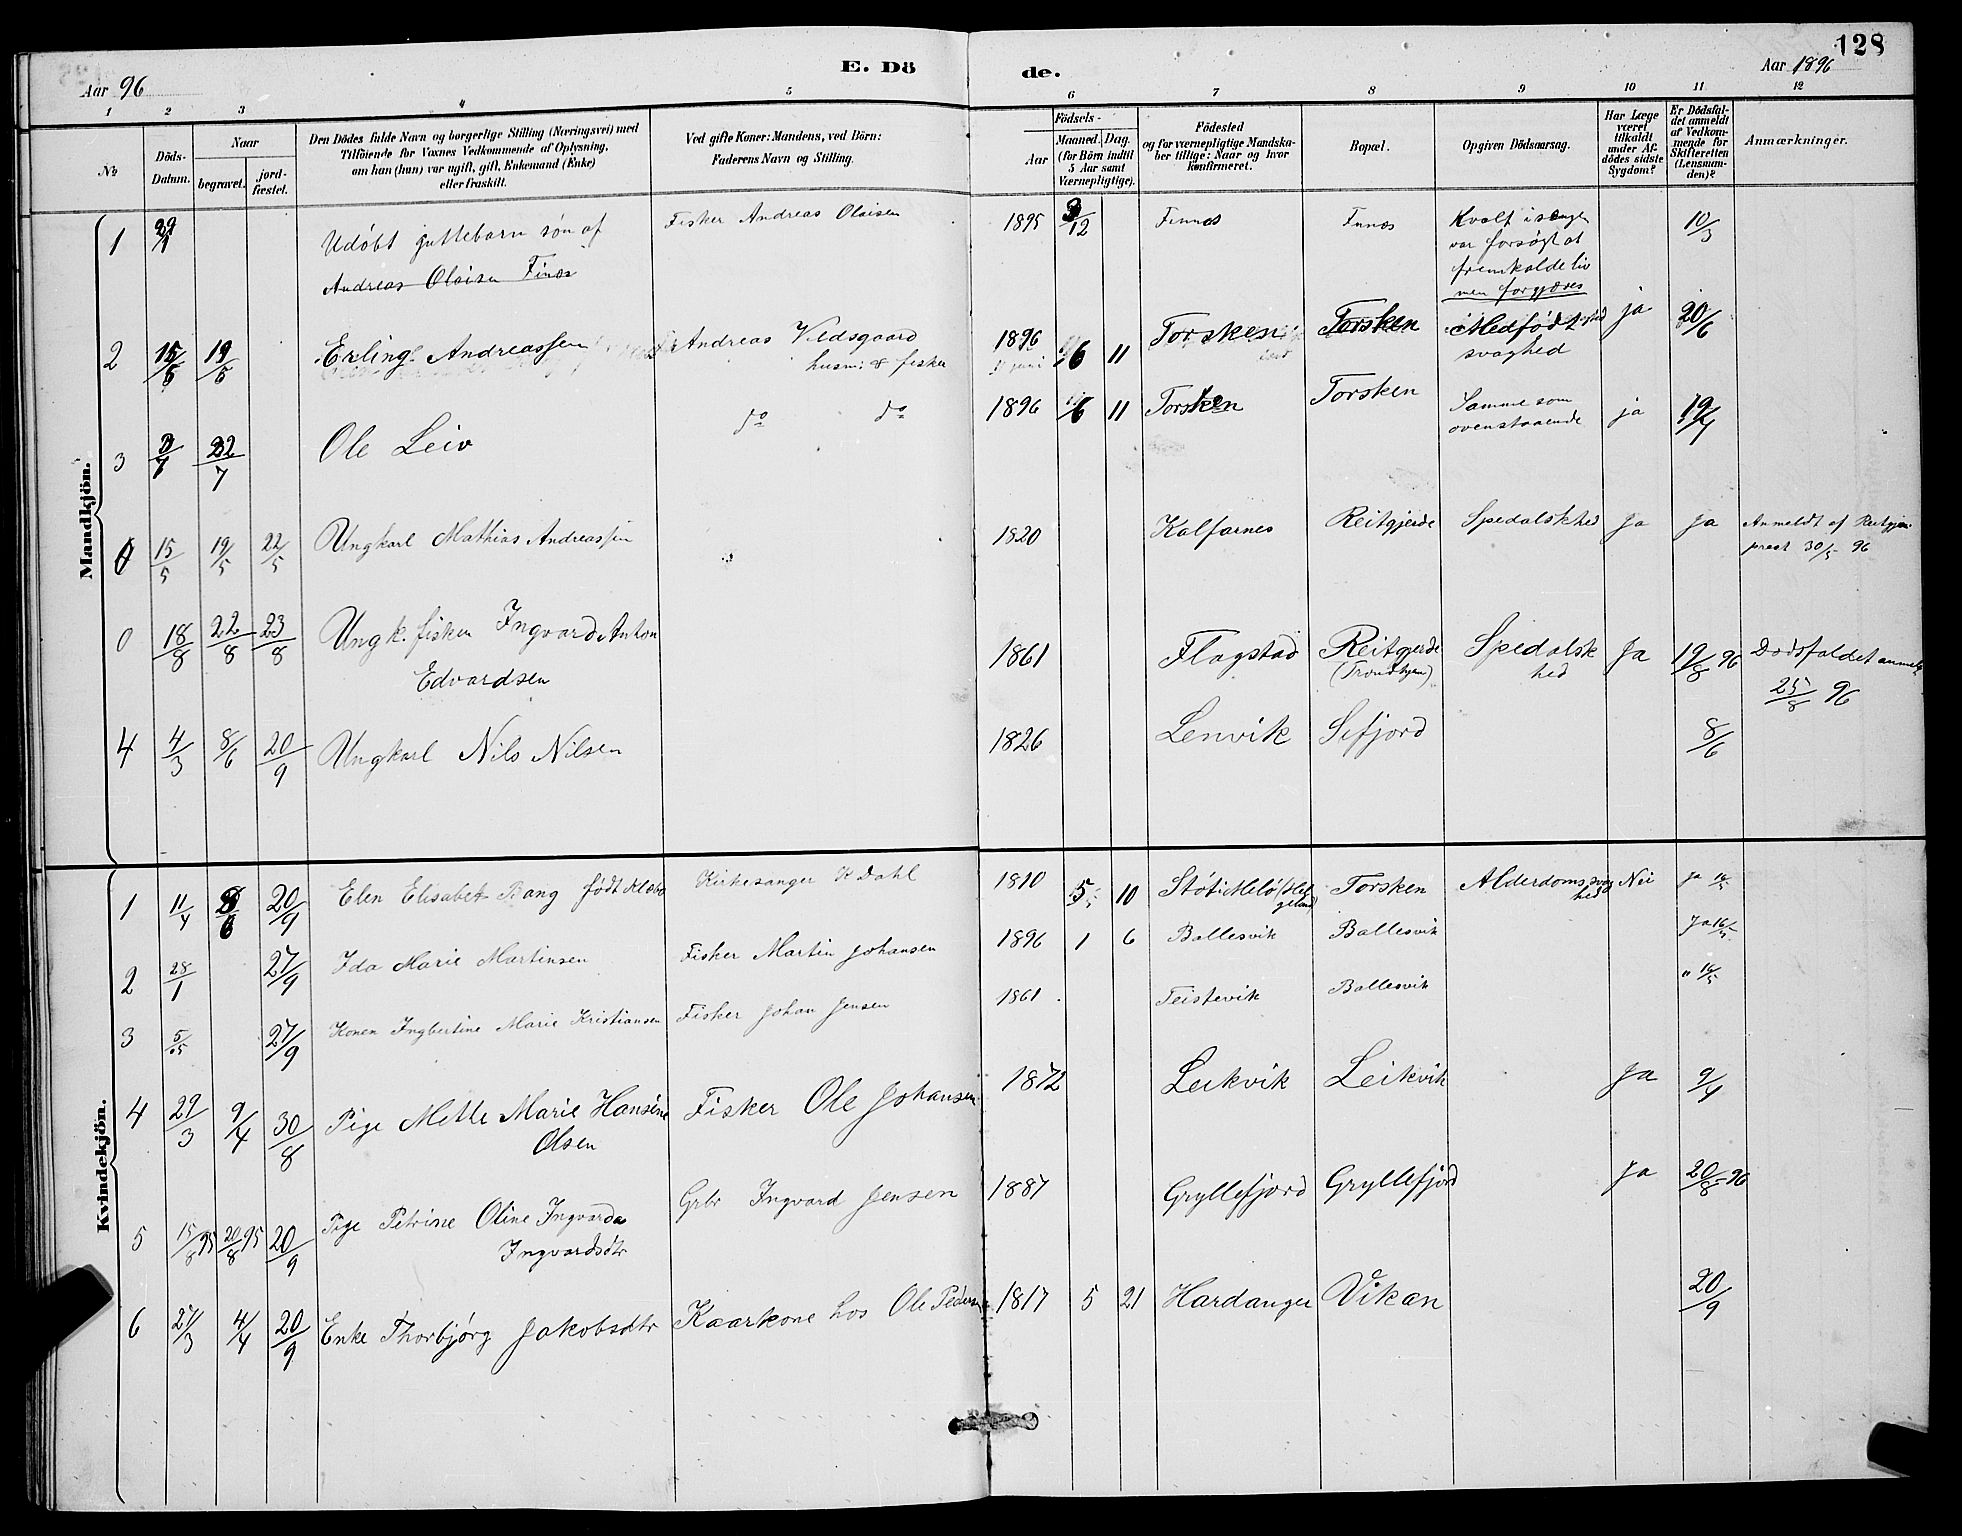 E. Dö
de.
128
Aar 96
Aar 1896
1 2 3 4 5 6 7 8 9 10 11 12
No
Döds-
Datum.
Naar
begravet.
jord-
fæstet.
Den Dödes fulde Navn og borgerlige Stilling (Næringsvei) med
Tilföiende for Voxnes Vedkommende af Oplysning,
om han (hun) var ugift, gift, Enkemand (Enke)
eller fraskilt.
Ved gifte Koner: Mandens, ved Börn:
Faderens Navn og Stilling.
Födsels-
Aar
Maaned.
Dag.
(for Börn indtil
5 Aar samt
Værnepligtige).
Födested
og for værnepligtige Mandska-
ber tillige: Naar og hvor
konfirmeret.
Bopæl.
Opgiven Dödsaarsag.
Har Læge
været
tilkaldt
under Af-
dödes sidste
Sygdom?
Er Dödsfal-
det anmeldt
af Vedkom-
mende for
Skifteretten
(Lensman-
den)?
Anmærkninger.
Mandkjön.
1 29/1 Udøbt guttebarn søn af Fisker Andreas Olaisen 1895 3/12 Finnes Finnes Kvalt i sengen 10/3
Andreas Olaisen Finæs var forsøgt at
fremkalde liv
men forgjæves
2 15/6 19/6 Erling Andreassen Andreas Vedsgaard 1896 6 11 Torsken Torsken Medfødt ja 20/6
husm: & fisker svaghed
3 3/7 22/7 Ole Leiv do do 1896 6 11 Torsken Torsken Samme som ja 19/7
ovenstaaende
0 15/5 19/5 22/5 Ungkarl Mathias Andreassen 1820 Kalfarnes Reitgjerde Spedalskhed Ja Ja Anmeldt af Reitgjer
prest 30/5 96
0 18/8 22/8 23/8 Ungk. fisker Ingvard Anton 1861 Flagstad Reitgjerde Spedalsk Ja 19/8 96 Dødsfaldet anmeldt
Edvardsen (Trondhjem) hed 25/8 96
4 4/3 8/6 20/9 Ungkarl Nils Nilsen 1826 Lenvik Sifjord 8/6
Kvindekjön.
1 11/4 8/6 20/9 Elen Elisabet Bang født Klæbo Kirkesanger K Dahl 1810 5 10 Støt i Melø (Hel Torsken Alderdomssvag Nei Ja
geland) hed
2 28/1 27/9 Ida Marie Martinsen Fisker Martin Johansen 1896 1 6 Ballesvik Ballesvik Ja 16/5
3 27/9 Konen Ingbertine Marie Kristiansen Fisker Johan Jensen 1861 Teistevik Ballesvik " 16/5
4 29/3 9/4 30/8 Pige Mette Marie Hansine Fisker Ole Johansen 1872 Leikvik Leikvik Ja 9/4
Olsen
5 15/8 95 20/8 95 20/9 Pige Petrine Oline Ingvarda Grbr Ingvard Jensen 1887 Gryllefjord Gryllefjord Ja 20/8-96
Ingvardsdtr
6 27/3 4/4 20/9 Enke Thorbjørg Jakobsdtr Kaarkone hos Ole Pedersen 1817 5 21 Hardanger Vikan 20/9